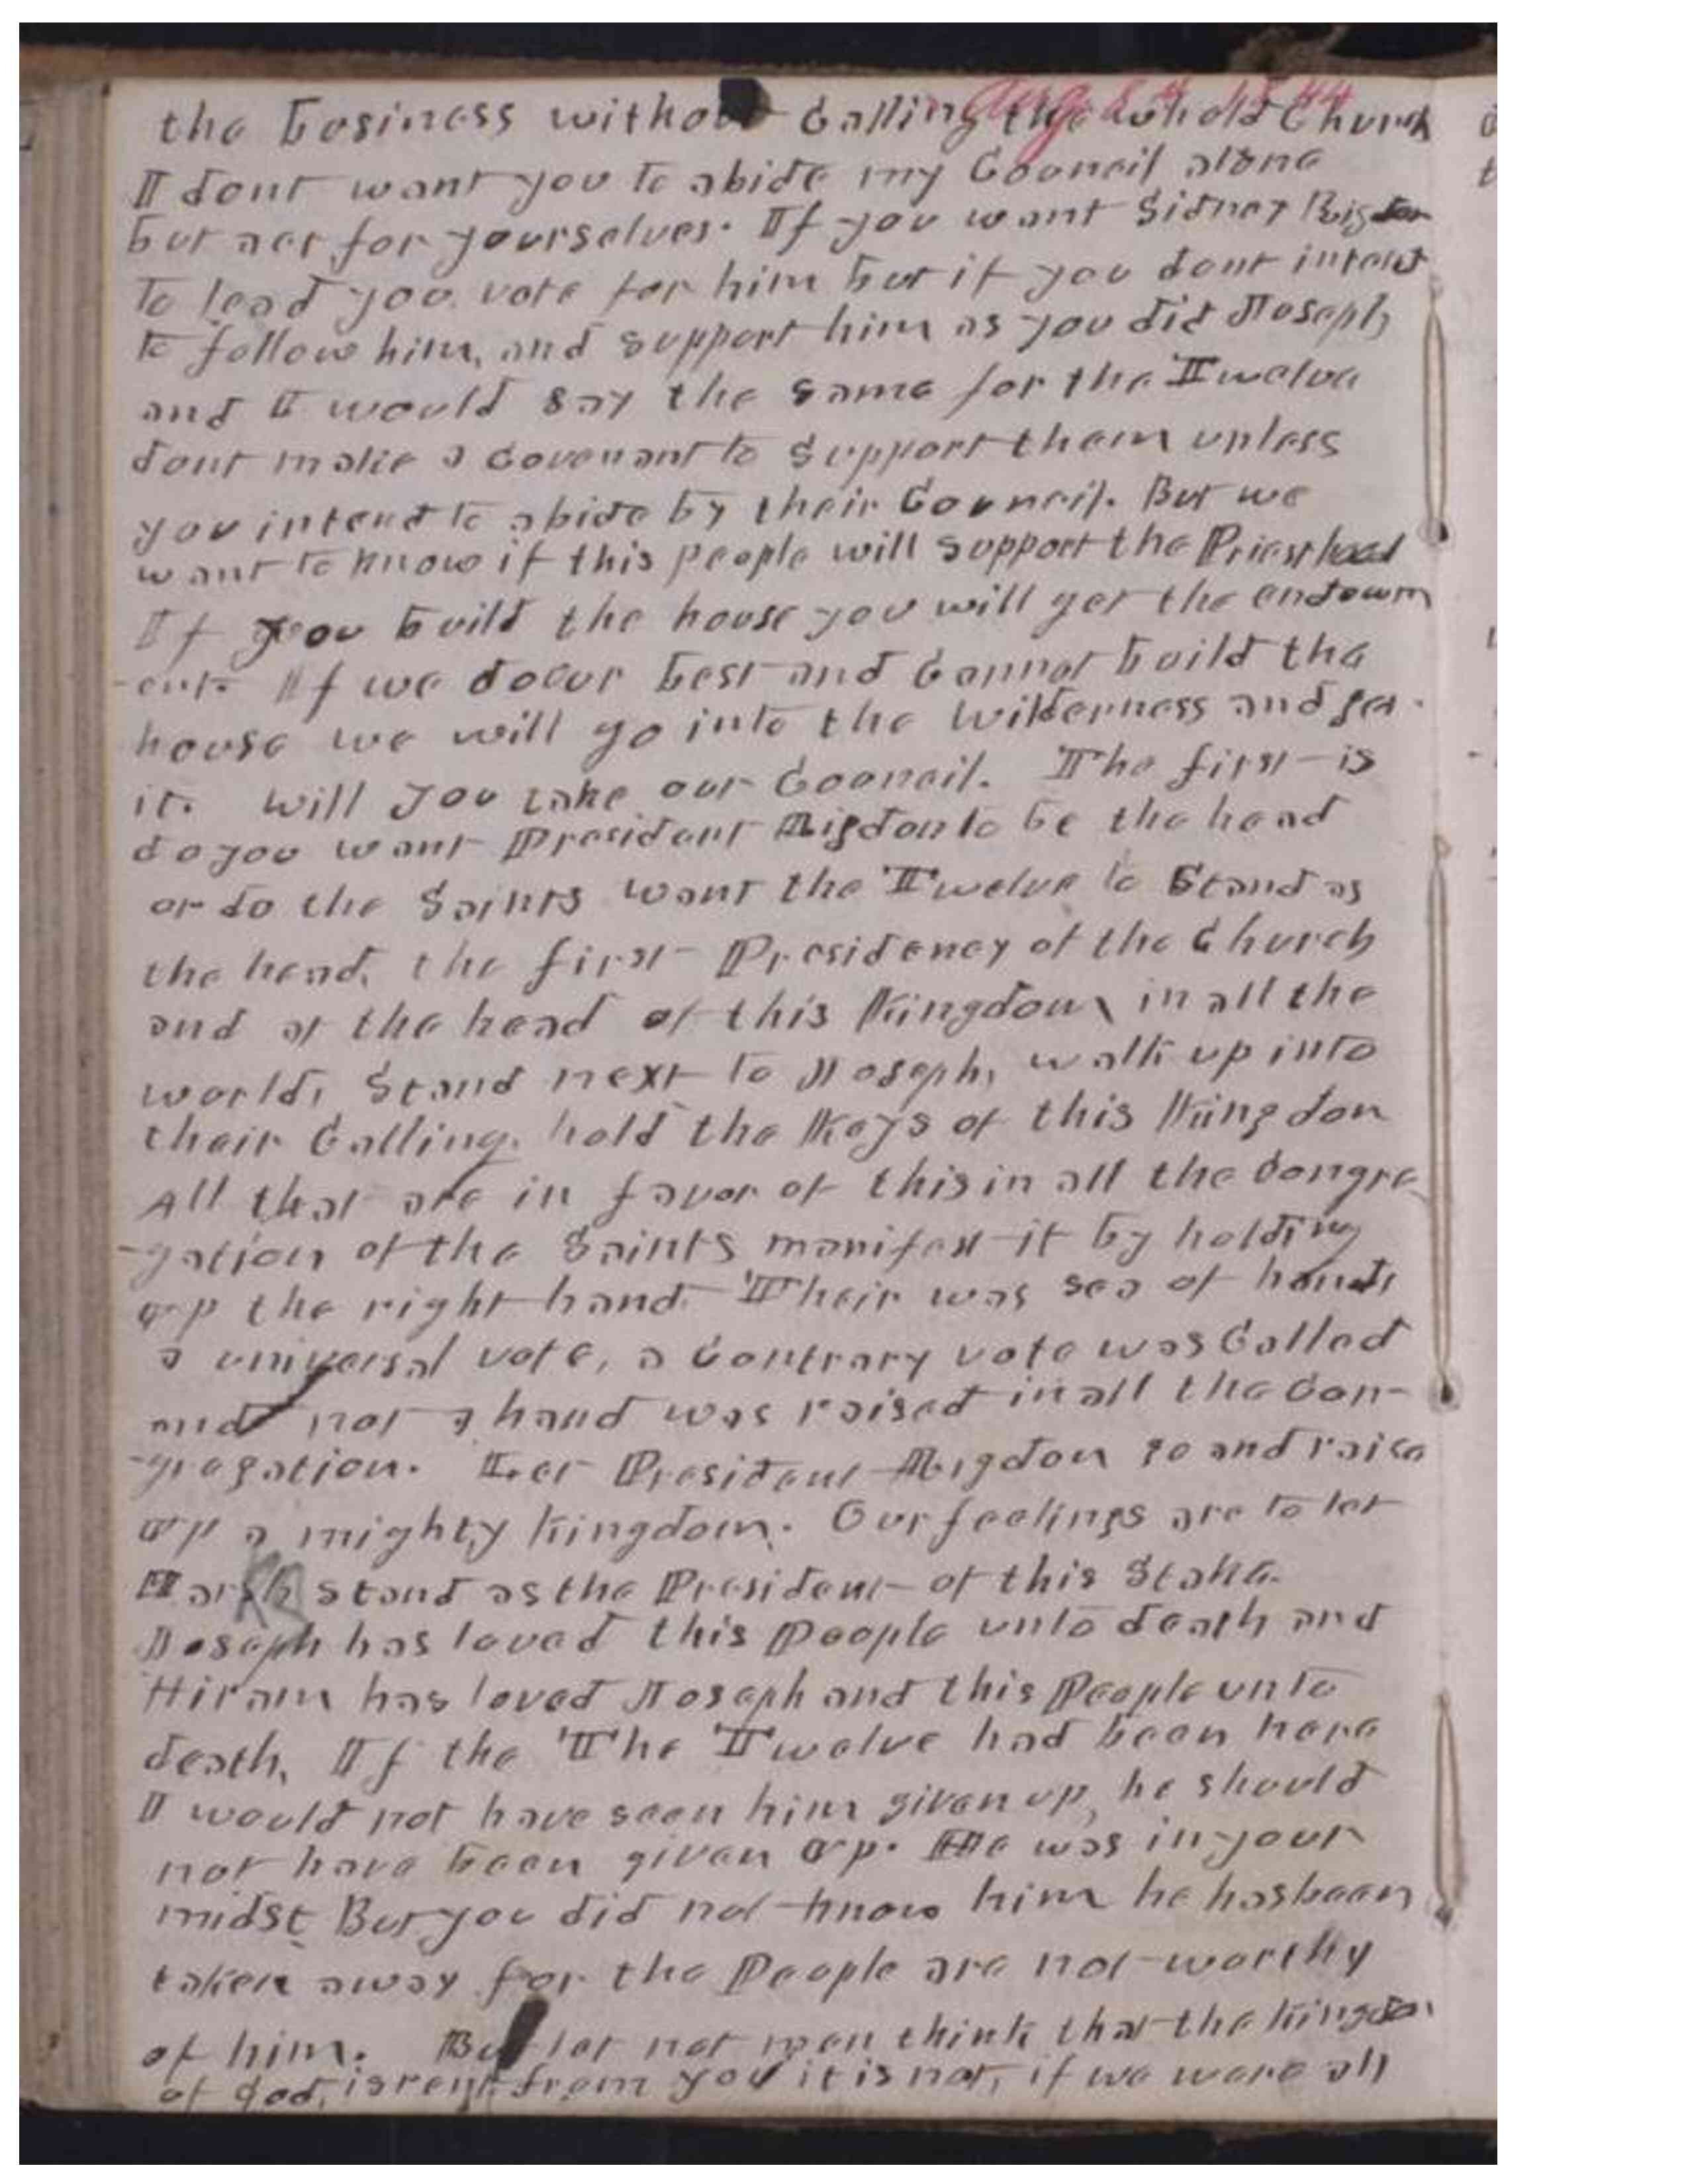 Aug 8th 1844
the business without Calling the whold Church
I dont want you to abide my Council alone
but act for yourselves. If you want Sidney Rigdon
to lead you vote for him but if you dont intend
to follow him, and support him as you did Joseph
and I would say the same for the Twelve
dont make a Covenant to Support them unless
you intend to abide by their Council. But we
want to know if this people will support the Priesthood
If you build the house you will get the endowm
-ent. If we do our best and Cannot build the
house we will go into the Wilderness and get
it. Will you take our Council. The first is
do you want President Rigdon to be the head
or do the Saints want the Twelve to Stand as
the head, the first Presidency of the Church
and at the head of this Kingdom in all the
world, Stand next to Joseph, walk up into
their Calling, hold the Keys of this Kingdom
All that are in favor of this in all the Congre
-gation of the Saints manifest it by holding
up the right hand. Their was sea of hands
a universal vote, a Contrary vote was Called
and not a hand was raised in all the Con-
-gregation. Let President Rigdon go and raise
up a mighty kingdom. Our feelings are to let
stand as the President of this Stake.
Joseph has loved this People unto death and
Hiram has loved Joseph and this People unto
death, If the The Twelve had been here
I would not have seen him given up, he should
not have been given up. He was in your
midst But you did not know him he has been
taken away for the People are not worthy
of him. But let not men think that the kingdom
of god, is rent from you it is not, if we were all